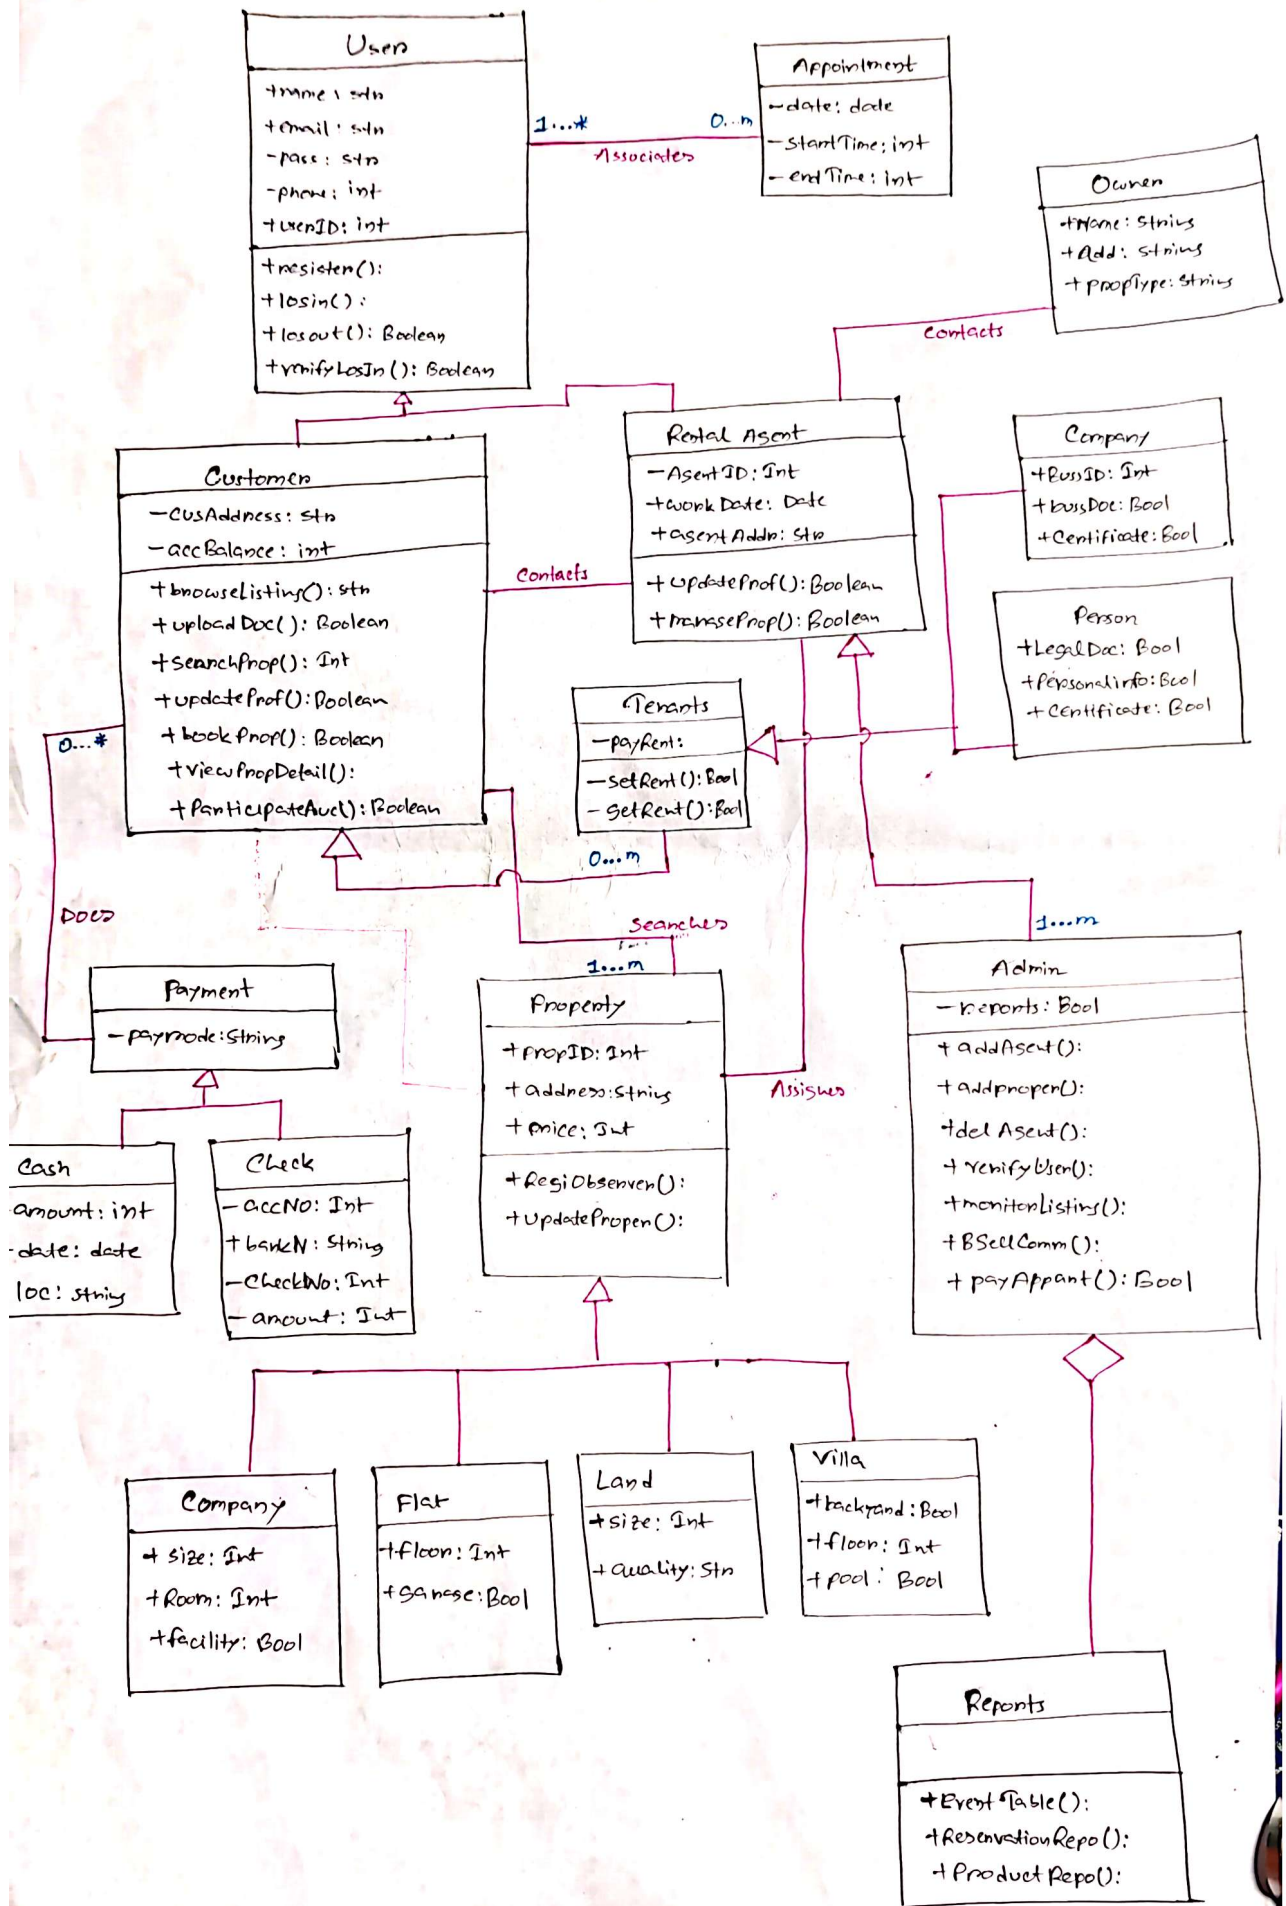 User
+name: str
+email: str
-pass: str
-phone: int
+userID: int
+register():
+login():
+logout(): Boolean
+verifyLogIn(): Boolean
1...*
0...m
Associates
Appointment
-date: date
-startTime: int
-endTime: int
Owner
+Name: String
+Add: String
+propType: String
Contacts
Customer
-cusAddress: str
-accBalance: int
+browseListing(): str
+uploadDoc(): Boolean
+SearchProp(): Int
+updateProf(): Boolean
+bookProp(): Boolean
+viewPropDetail():
+ParticipateAuc(): Boolean
Contacts
Rental Agent
-AgentID: Int
+work Date: Date
+agentAddr: Str
+updateProf(): Boolean
+manageProp(): Boolean
Company
+BussID: Int
+bussDoc: Bool
+Certificate: Bool
Person
+LegalDoc: Bool
+Personalinfo: Bool
+Certificate: Bool
Tenants
-payRent:
-setRent(): Bool
-getRent(): Bool
0...*
0...m
Does
Searches
1...m
1...m
Payment
-paymode: String
Property
+propID: Int
+address: String
+price: Int
+RegiObserver():
+updateProper():
Assigns
Admin
-reports: Bool
+addAgent():
+addproper():
+delAgent():
+verifyUser():
+monitorListing():
+BSellComm():
+payAppant(): Bool
Cash
amount: int
-date: date
loc: string
Check
-accNO: Int
+bankN: String
-CheckNo: Int
-amount: Int
Company
+size: Int
+Room: Int
+facility: Bool
Flat
+floor: Int
+garage: Bool
Land
+size: Int
+Quality: Str
Villa
+backyard: Bool
+floor: Int
+pool: Bool
Reports
+Event Table():
+ReservationRepo():
+ProductRepo():